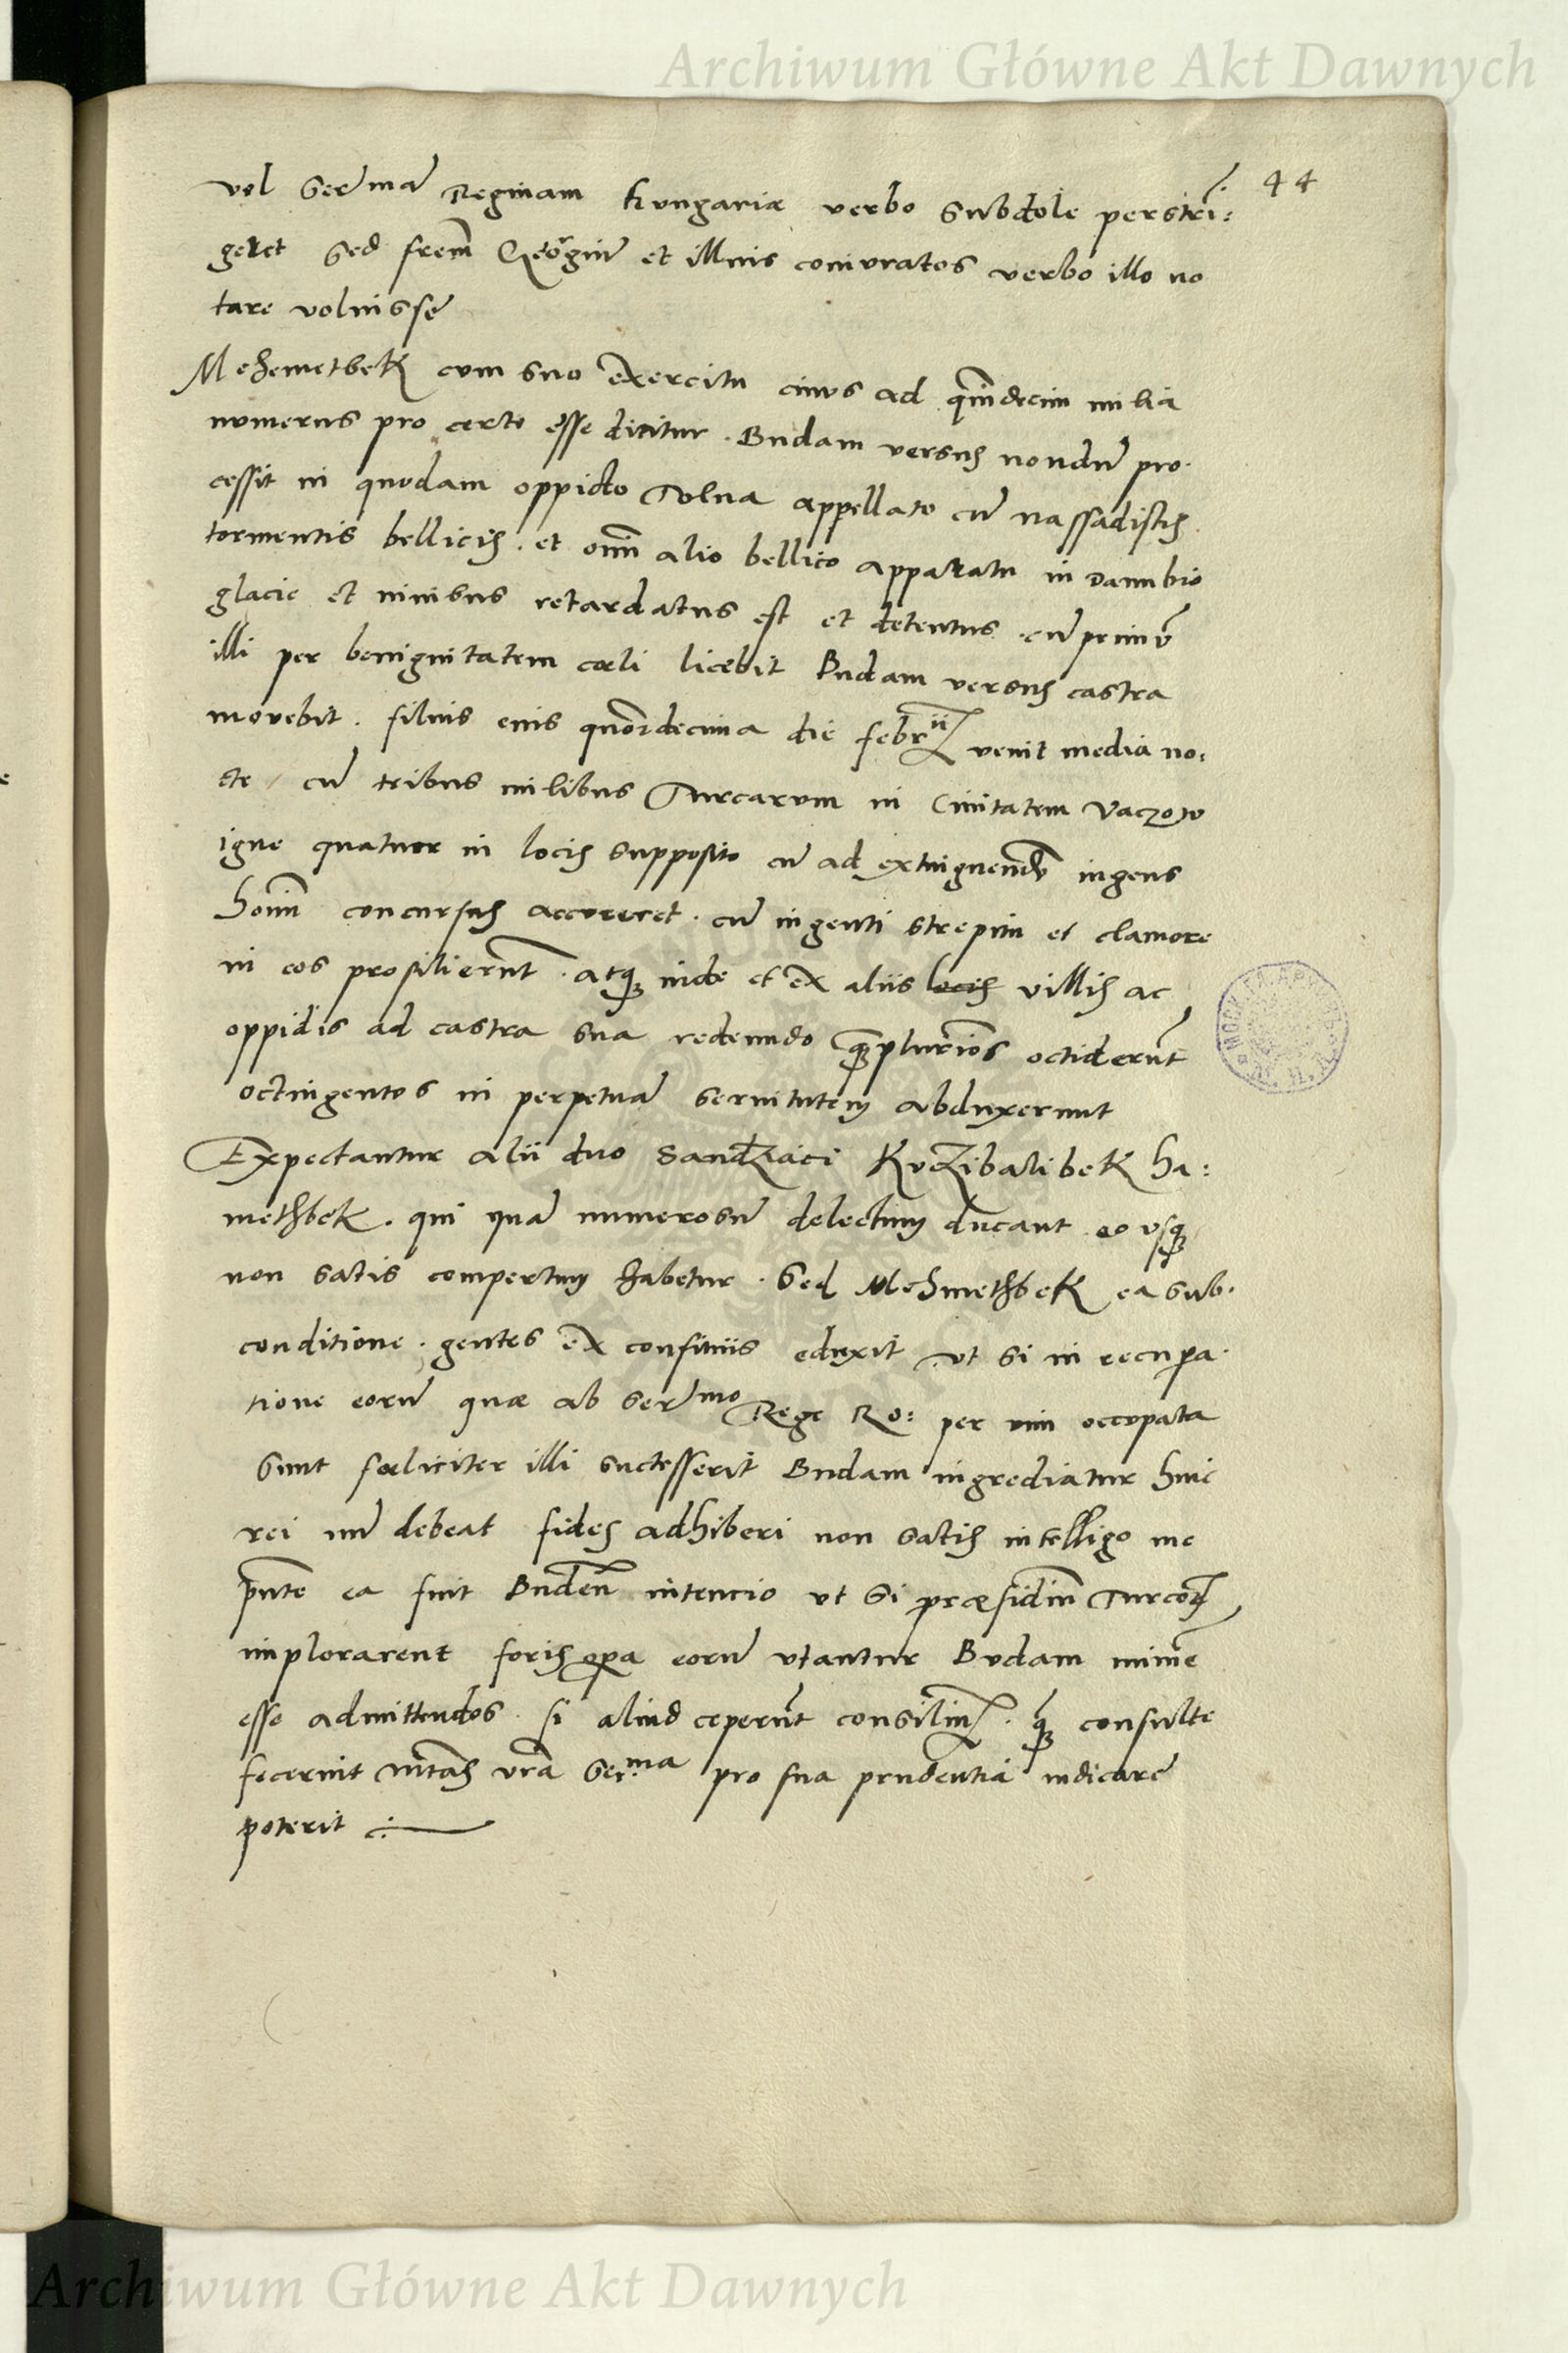 Archiwum Główne Akt Dawnych
44
vel Serēmā Reginam Hungariæ verbo subdole perstrī:
geret sed frēm Georgiū et illius coniuratos verbo illo no
tare voluisse
Mehemetbek cum suo exercitu cuius ad quīdecim milia
numerus pro certo esse dicitur. Budam versus nondū pro.
cessit in quodam oppido Tolna appellato cū nassadistis
tormentis bellicis. et omī alio bellico apparatu in Danubio
glacie et nivibus retardatus est et detentus. cū primū
illi per benignitatem cæli licebit Budam versus castra
movebit. filius eius quordecima die febrii venit media no:
cte cū tribus milibus Turcarum in Civitatem Vaczoto
igne quatuor in locis supposito cū ad extinguendū ingens
homī concursus accurreret. cū ingenti strepitu et clamore
in eos prosilierūt. atq inde et ex aliis locis villis ac
oppidis ad castra sua redeundo quāplurimos occiderūt
octingentos in perpetuā servitutem abduxerunt
Expectantur alii duo Sandziaci Kuczibalibek Ha:
methbek. qui quā numerosū delectum ducant eousq
non satis compertum habetur. Sed Mehmethbek ea sub.
conditione. gentes ex confiniis eduxit ut si in recupa.
tione eorū quæ ab Serēmo Rege Ro: per vim occupata
sunt fœliciter illi successerit Budam ingrediatur huic
rei nū debeat fides adhiberi non satis intelligo me
pñte ea fuit Budeñ intencio ut si præsidiū Turcoꝝ
implorarent foris opa eorū utantur Budam minīe
esse admittendos. si aliud ceperūt consiliū. q̄ consulte
fecerint mtās vrā Ser.ma pro sua prudentia iudicare
poterit
Archiwum Główne Akt Dawnych